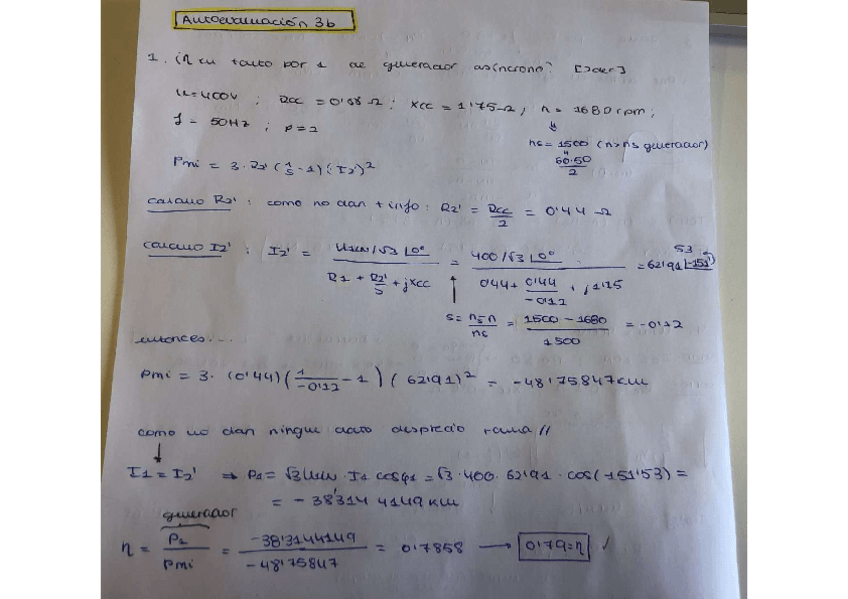 Autoevaluación 3b
1. ¿η en tanto por 1 de generador asíncrono?
U=400V ; Rcc = 0'88 Ω ; Xcc = 1'75 Ω ; n = 1680 rpm ;
f = 50Hz ; p=2
ns = 1500 (n>ns generador)
60·50
2
Pmi = 3 · R2' (1/s - 1) (I2')²
Calculo R2' : como no dan + info : R2' = Rcc/2 = 0'44 Ω
Calculo I2' : I2' = U1N/√3 |0° / R1 + R2'/s + jXcc = 400/√3 |0° / 0'44 + 0'44/-0'12 + j1'75 = 62'91 |-151'53°
s = ns-n/ns = 1500 - 1680 / 1500 = -0'12
entonces...
Pmi = 3 · (0'44) (1/-0'12 - 1) (62'91)² = -48'75847 kW
como no dan ningun dato desprecio rama //
I1 = I2' ⇒ P1 = √3 U1N · I1 cosφ1 = √3 · 400 · 62'91 · cos(-151'53) =
= -38'3144149 kW
generador
η = P1/Pmi = -38'3144149 / -48'75847 = 0'7858 → 0'79 = η ✓